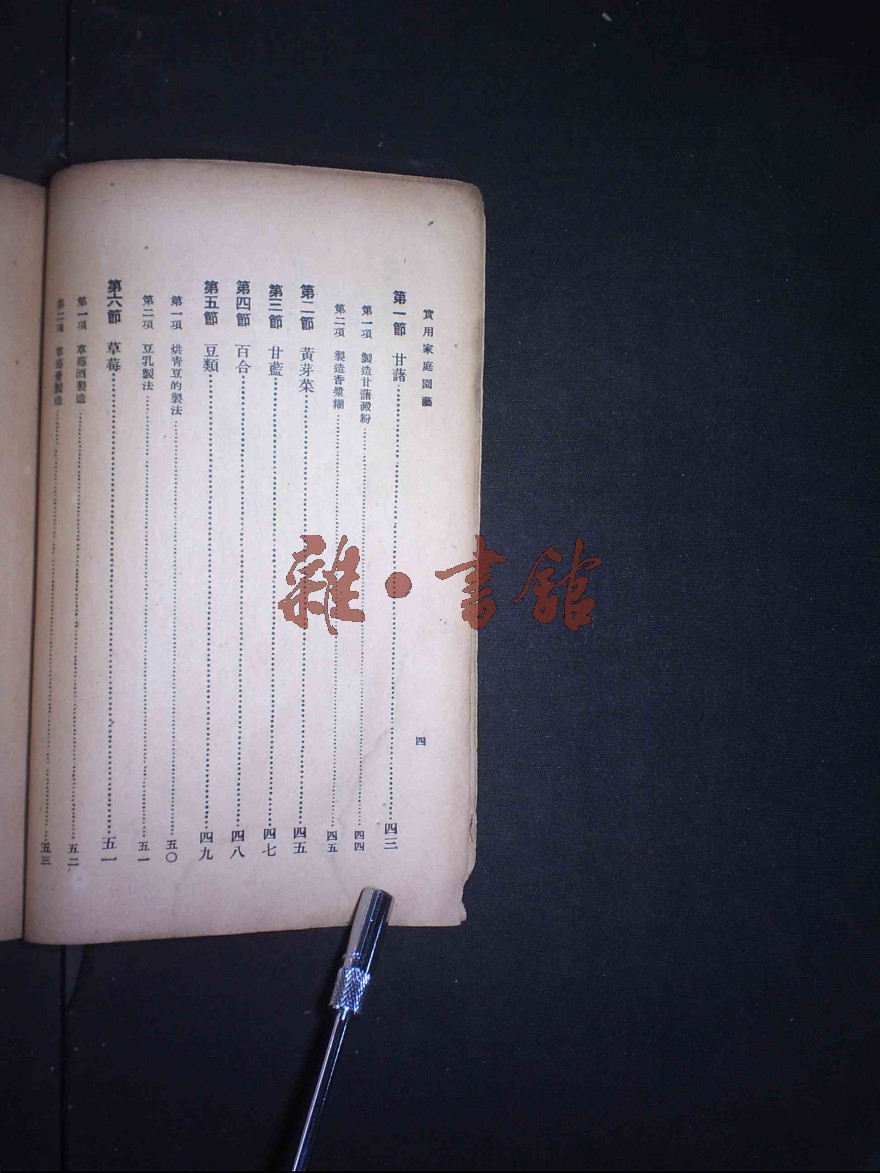 實用家庭園藝
四
第一節 甘藷……四三
第一項 製造甘藷澱粉……四四
第二項 製造香漿糊……四五
第二節 黃芽菜……四五
第三節 甘藍……四七
第四節 百合……四八
第五節 豆類……四九
第一項 烘青豆的製法……五〇
第二項 豆乳製法……五一
第六節 草莓……五一
第一項 草莓酒製造……五二
第二項 草莓膏製造……五三
雜·書館